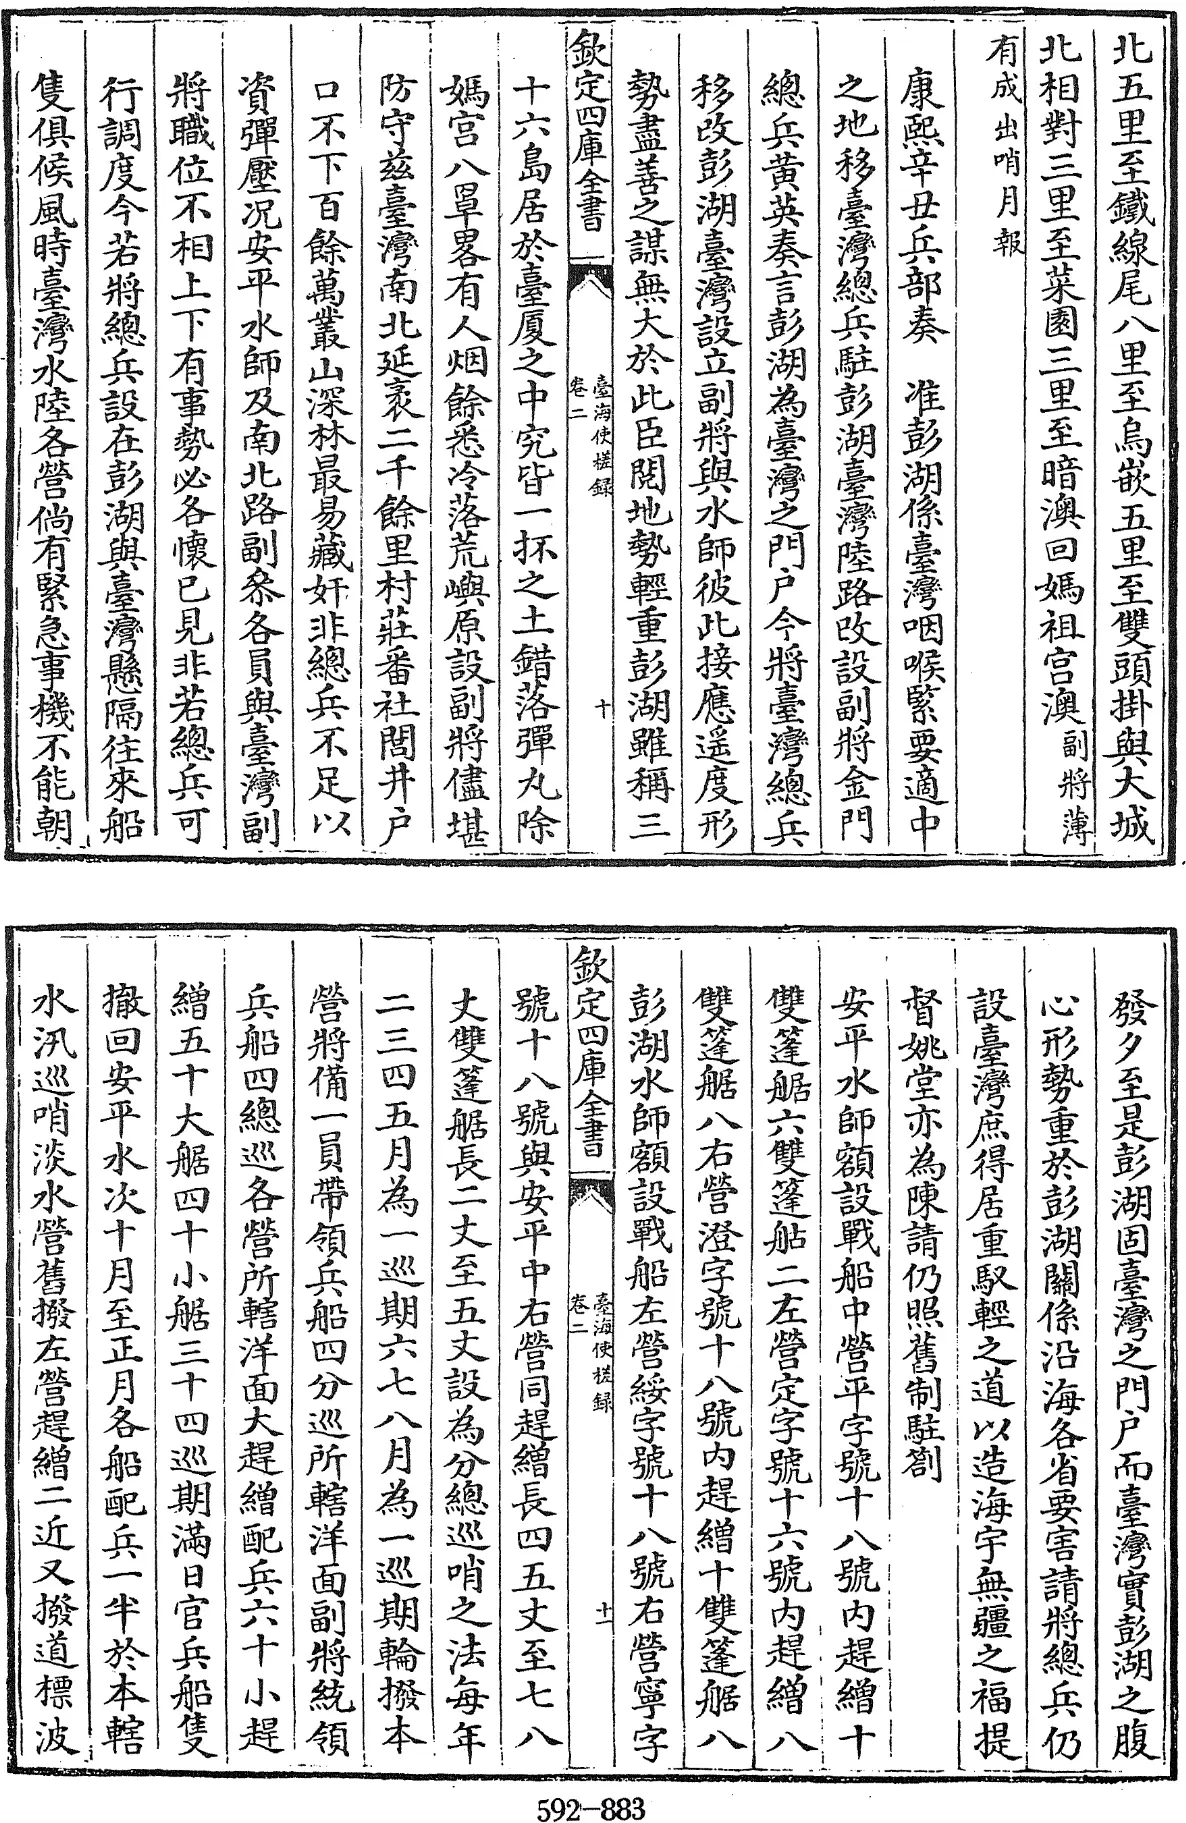 北五里至鐵線尾八里至烏嵌五里至雙頭掛與大城
北相對三里至菜園三里至暗澳回媽祖宫澳副將薄
有成出哨月報
康熙辛丑兵部奏　准彭湖係臺灣咽喉緊要適中
之地移臺灣總兵駐彭湖臺灣陸路改設副將金門
總兵黄英奏言彭湖為臺灣之門户今將臺灣總兵
移改彭湖臺灣設立副將與水師彼此接應遥度形
勢盡善之謀無大於此臣閲地勢輕重彭湖雖稱三
欽定四庫全書
臺海使槎録
卷二
十
十六島居於臺厦之中究皆一抔之土錯落彈丸除
媽宫八罩畧有人烟餘悉冷落荒嶼原設副將儘堪
防守兹臺灣南北延袤二千餘里村莊番社閭井户
口不下百餘萬叢山深林最易藏奸非總兵不足以
資彈壓况安平水師及南北路副叅各員與臺灣副
將職位不相上下有事勢必各懷已見非若總兵可
行調度今若將總兵設在彭湖與臺灣懸隔往來船
隻俱候風時臺灣水陸各營倘有緊急事機不能朝
發夕至是彭湖固臺灣之門户而臺灣實彭湖之腹
心形勢重於彭湖關係沿海各省要害請將總兵仍
設臺灣庶得居重馭輕之道以造海宇無疆之福提
督姚堂亦為陳請仍照舊制駐劄
安平水師額設戰船中營平字號十八號内趕繒十
雙篷艍六雙篷舫二左營定字號十六號内趕繒八
雙篷艍八右營澄字號十八號内趕繒十雙篷艍八
彭湖水師額設戰船左營綏字號十八號右營寧字
欽定四庫全書
臺海使槎録
卷二
十一
號十八號與安平中右營同趕繒長四五丈至七八
丈雙篷艍長二丈至五丈設為分總巡哨之法每年
二三四五月為一巡期六七八月為一巡期輪撥本
營將備一員帶領兵船四分巡所轄洋面副將統領
兵船四總巡各營所轄洋面大趕繒配兵六十小趕
繒五十大艍四十小艍三十四巡期滿日官兵船隻
撤回安平水次十月至正月各船配兵一半於本轄
水汛巡哨淡水營舊撥左營趕繒二近又撥道標波
592-883